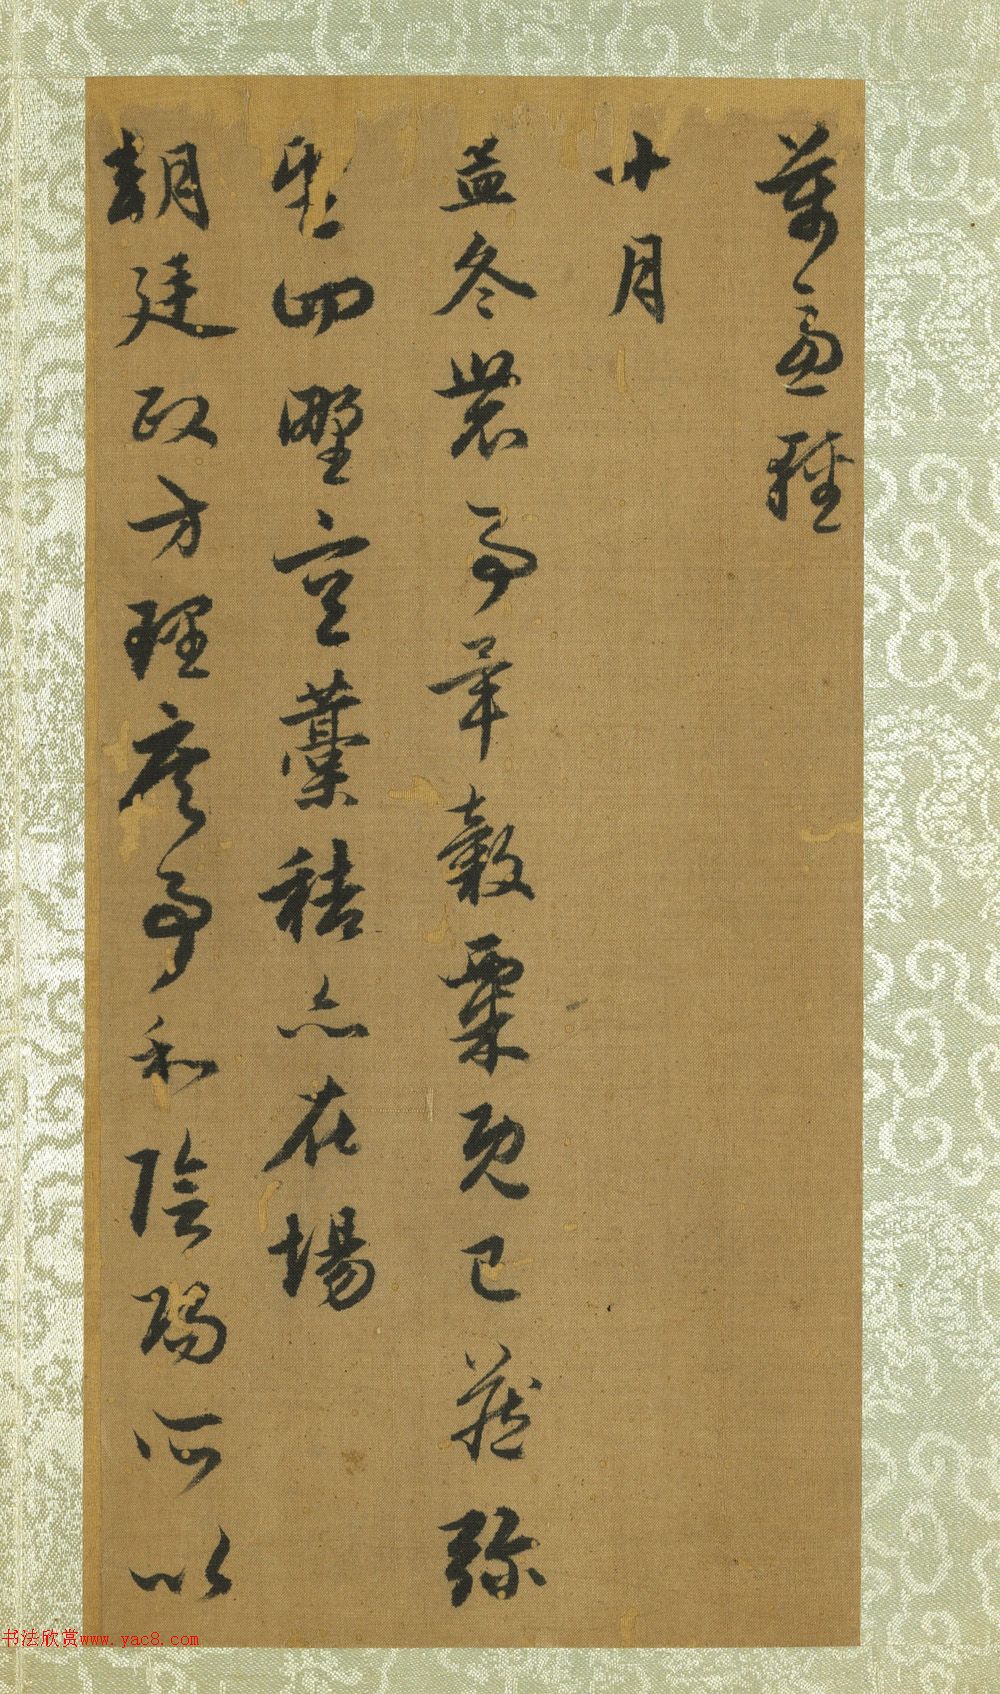 萬慮輕
十月
孟冬農事畢穀粟既已藏彌
望四野空藁秸亦在場
朝廷政方理庶事和陰陽所以
书法欣赏www.yac8.com